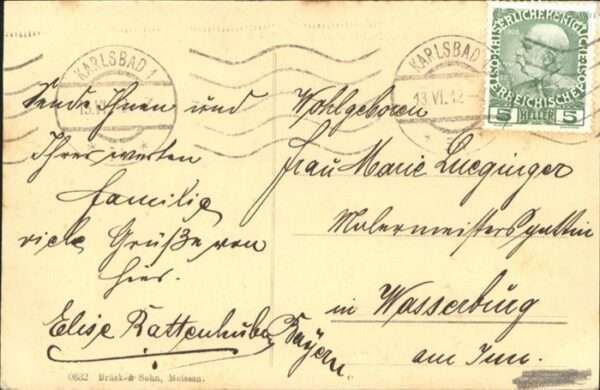 KARLSBAD 1
KARLSBAD
13.VI.12
1908
5 HELLER 5
Sende Ihnen und
Ihrer werten
Familie
viele Grüße von
hier.
Elise Rattenhuber
Wohlgeboren
Frau Marie Lueginger
Malermeistersgattin
in Wasserburg
am Inn.
Bayern.
0632 Brück & Sohn, Meissen.